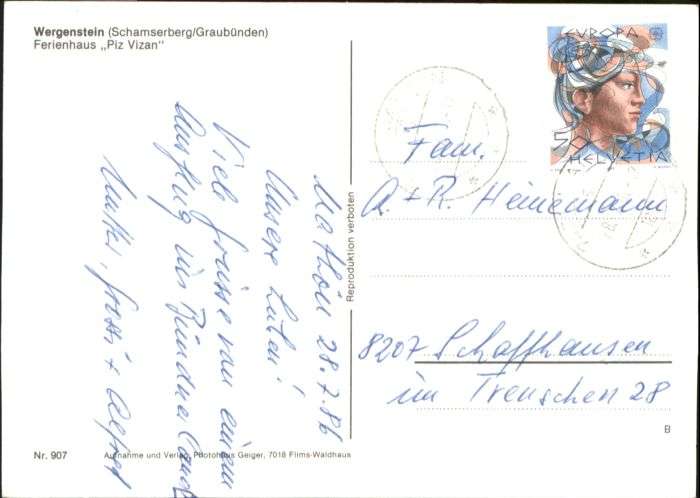 Wergenstein (Schamserberg/Graubünden)
Ferienhaus „Piz Vizan"
Mathon 28.7.86
Unsere Lieben!
Viele Grüsse von einem
Ausflug ins Bündnerland
Reproduktion verboten
EVROPA
50
HELVETIA
Fam.
A + R. Heinemann
8207 Schaffhausen
im Trenschen 28
B
Nr. 907
Aufnahme und Verlag, Photohaus Geiger, 7018 Flims-Waldhaus